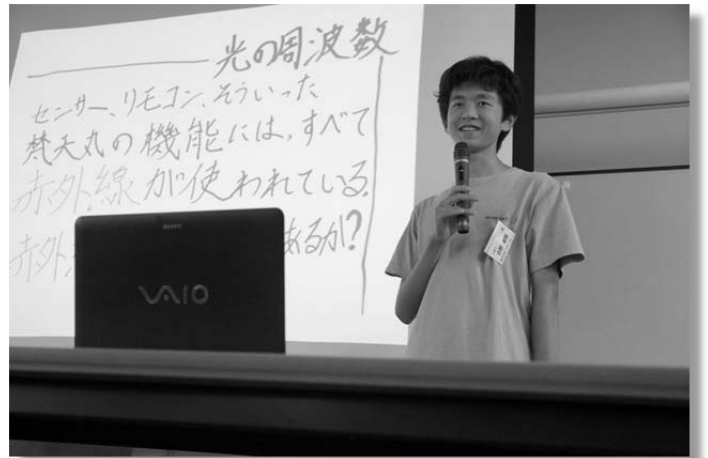 光の周波数
センサー、リモコン、そういった
梵天丸の機能には、すべて
赤外線が使われている.
赤外 あるか?
SONY
VAIO